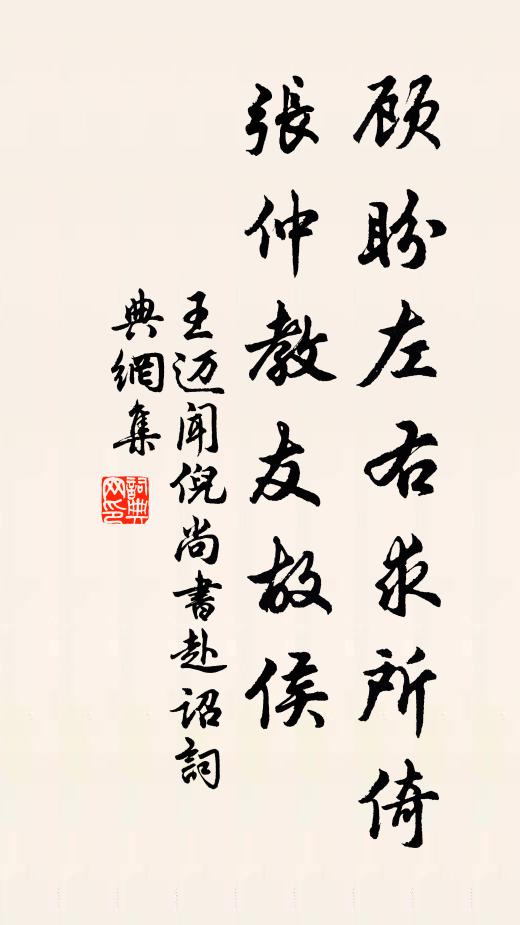 顾盼左右求所倚
張仲教友故侯
王迈闻倪尚書赴诏詞
典網集
詞典
网印